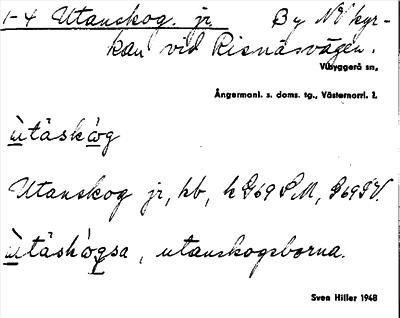 1-4 Utanskog. jr By NV kyr-
kan vid Risnäsvägen.
Vibyggerå sn,
Ångermanl. s. doms. tg., Västernorrl. l.
ùtäskὠg
Utanskog jr, kb, k G69 SM, G69SV.
ùtäskὠgsa, utanskogsborna.
Sven Hiller 1948